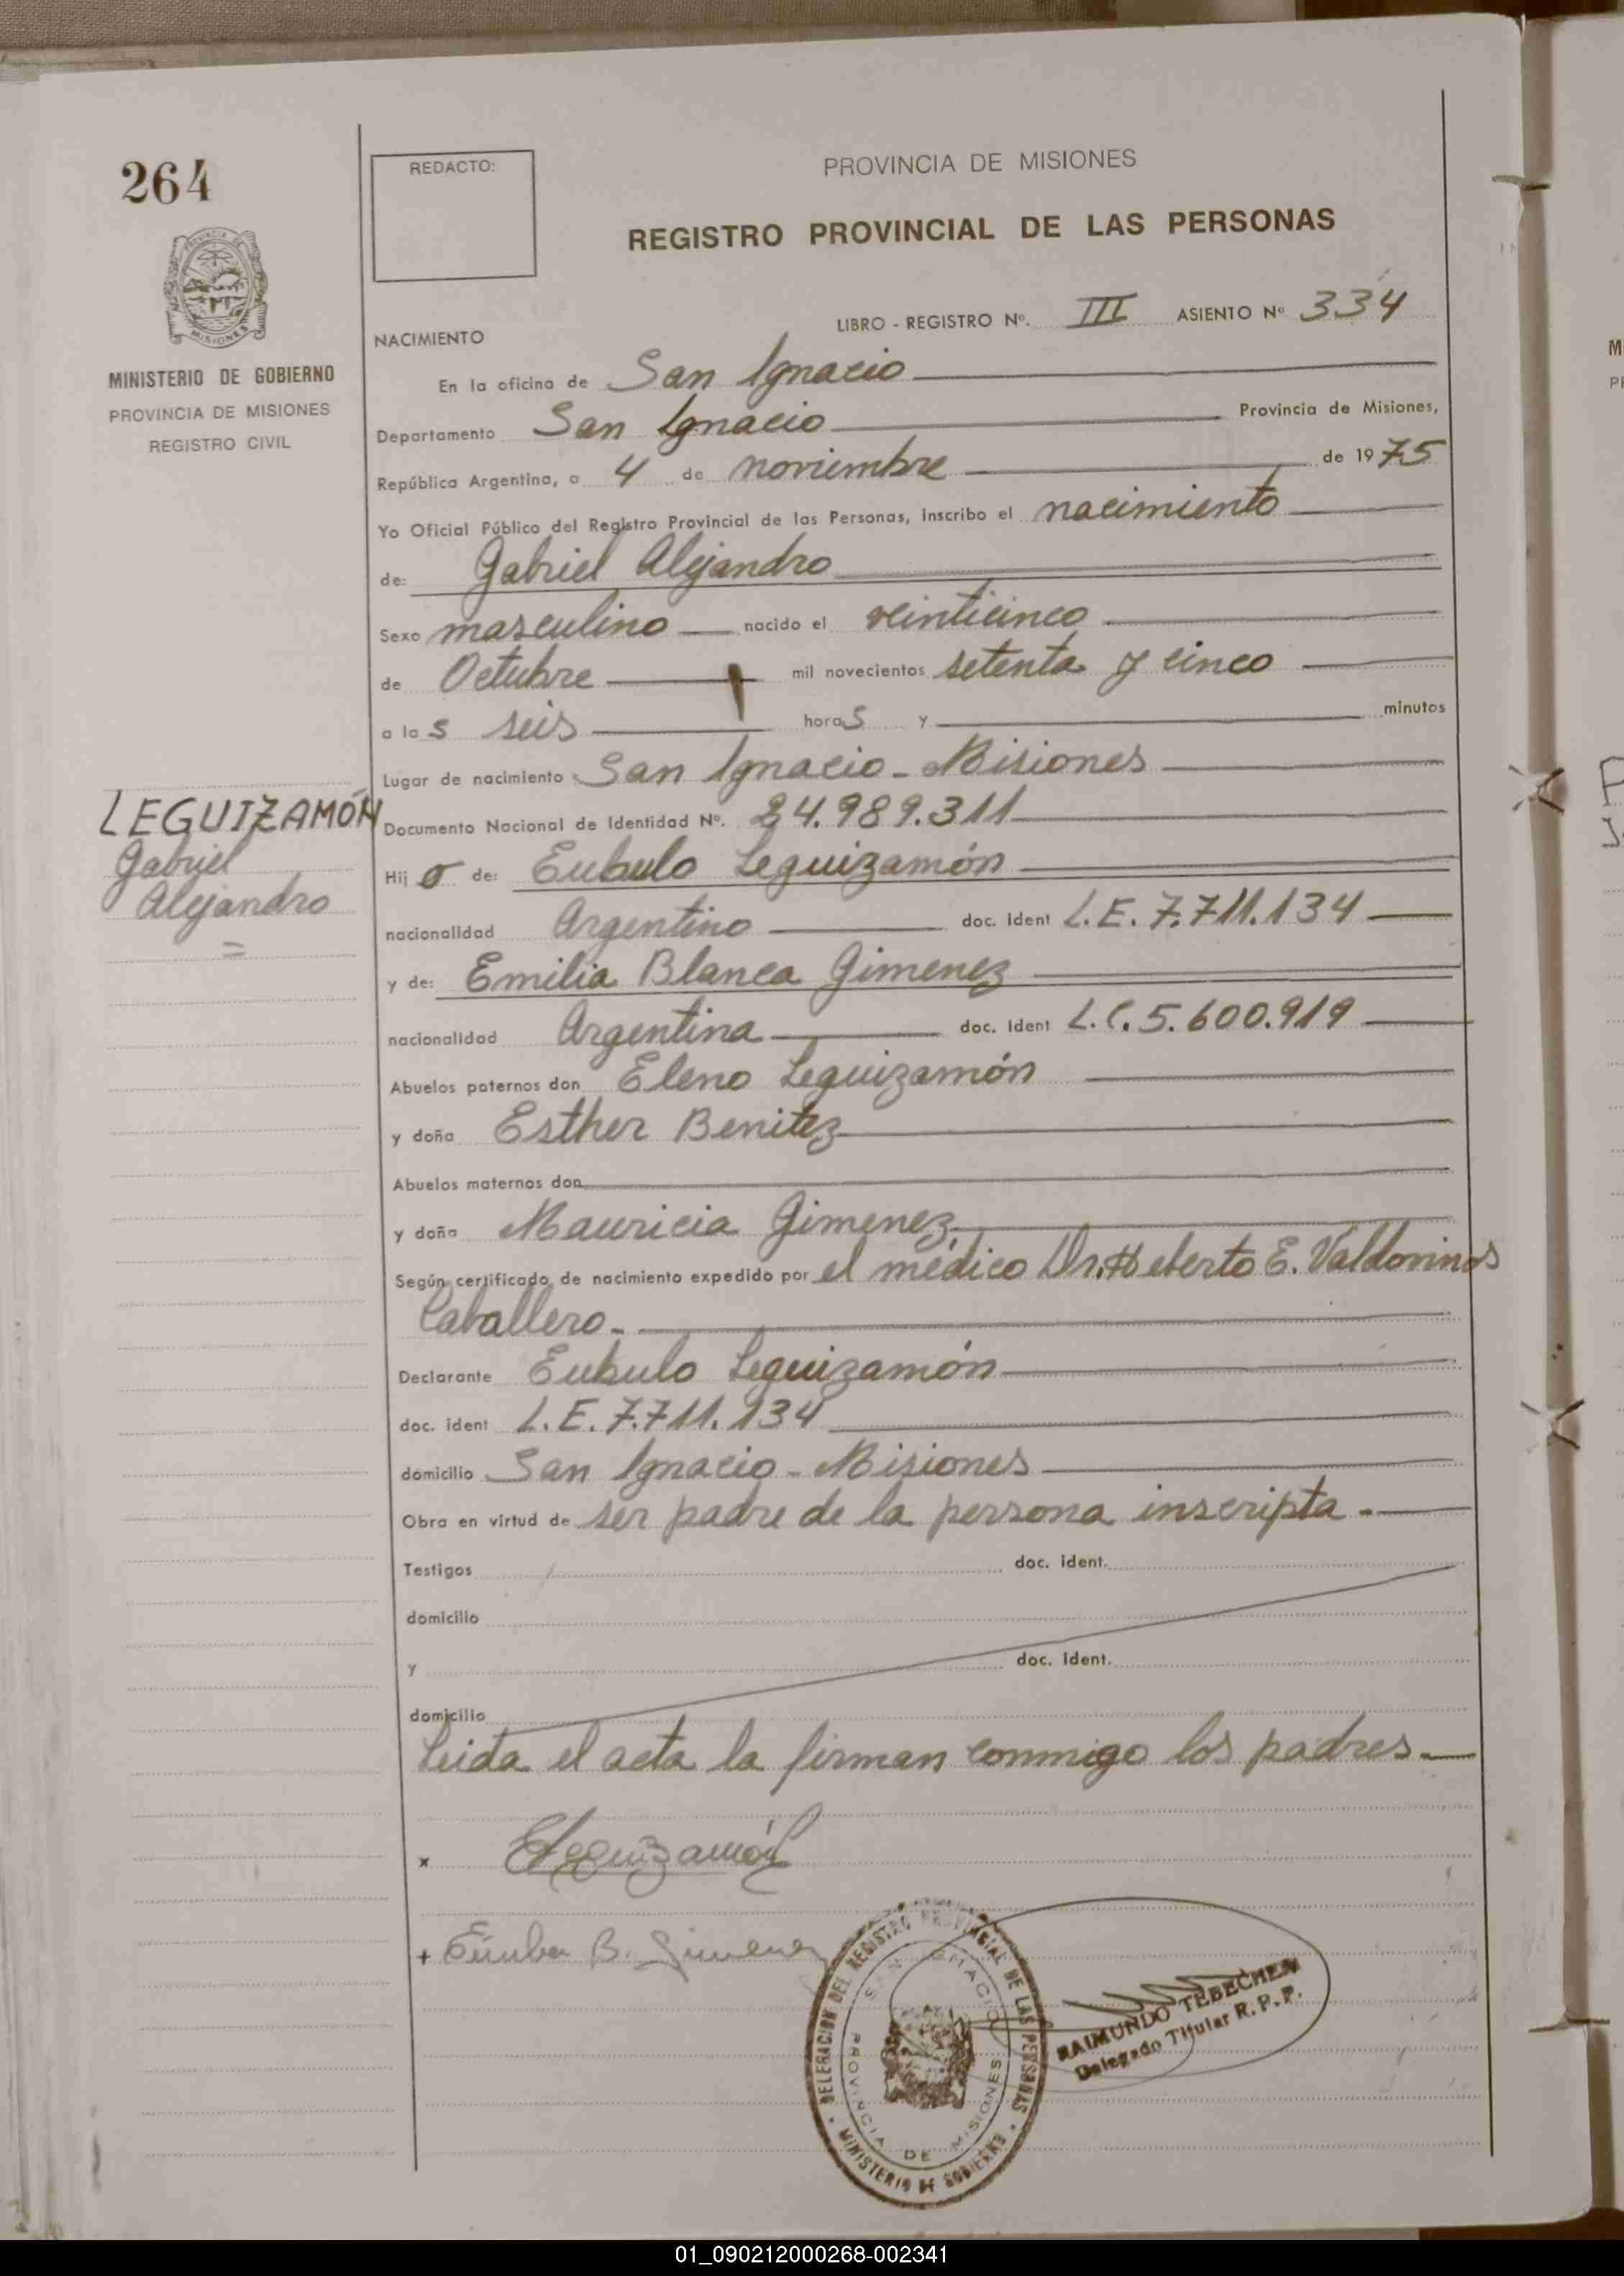 264
REDACTO:
PROVINCIA DE MISIONES
REGISTRO PROVINCIAL DE LAS PERSONAS
MISIONES
MINISTERIO DE GOBIERNO
PROVINCIA DE MISIONES
REGISTRO CIVIL
LIBRO - REGISTRO Nº. III ASIENTO Nº 334
NACIMIENTO
En la oficina de San Ignacio
Departamento San Ignacio Provincia de Misiones,
República Argentina, a 4 de noviembre de 1975
Yo Oficial Público del Registro Provincial de las Personas, inscribo el nacimiento
de: Gabriel Alejandro
Sexo masculino nacido el veinticinco
de Octubre mil novecientos setenta y cinco
a las seis horas y minutos
Lugar de nacimiento San Ignacio - Misiones
LEGUIZAMÓN
Gabriel
Alejandro
Documento Nacional de Identidad Nº. 24.989.311
Hijo de: Eubulo Leguizamón
nacionalidad Argentino doc. ident L.E. 7.711.134
y de: Emilia Blanca Gimenez
nacionalidad Argentina doc. ident L.C. 5.600.919
Abuelos paternos don Eleno Leguizamón
y doña Esther Benitez
Abuelos maternos don
y doña Mauricia Gimenez.
Según certificado de nacimiento expedido por el médico Dr. Heberto E. Valdovinos
Caballero.-
Declarante Eubulo Leguizamón
doc. ident L.E. 7.711.134
domicilio San Ignacio - Misiones
Obra en virtud de ser padre de la persona inscripta.-
Testigos doc. ident.
domicilio
y doc. ident.
domicilio
Leida el acta la firman conmigo los padres.-
x ELeguizamón
+ Emilia B. Gimenez
DELEGACION DEL REGISTRO PROVINCIAL DE LAS PERSONAS
SAN IGNACIO
PROVINCIA DE MISIONES
MINISTERIO DE GOBIERNO
RAIMUNDO TEBECHEN
Delegado Titular R.P.P.
01_090212000268-002341